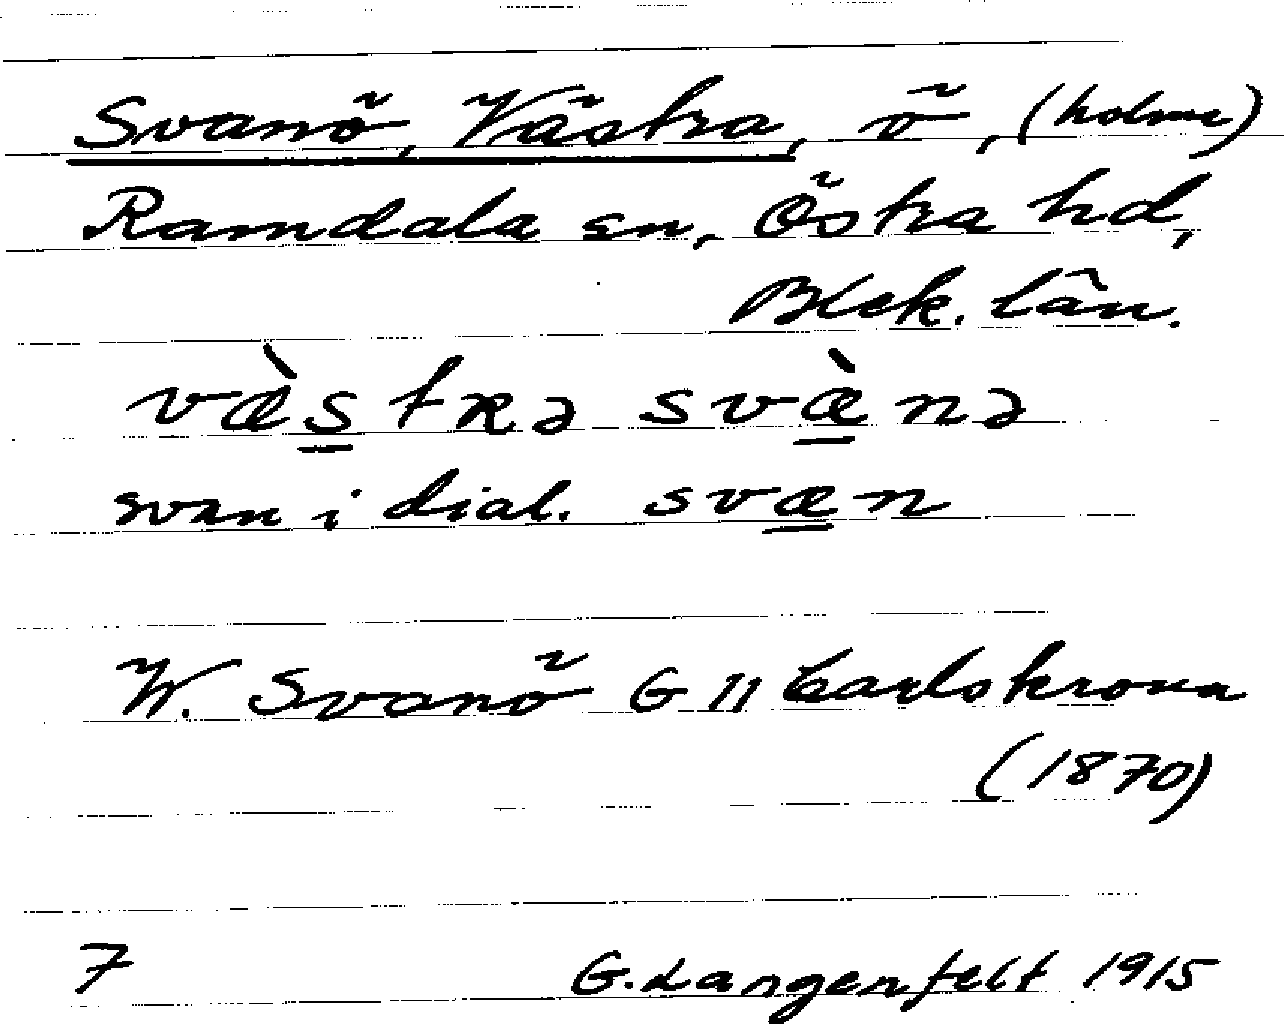 Svanö, Västra, ö, (holme)
Ramdala sn, Östra hd,
Blek. län.
væ̀s̲tʀə svæ̲̀nə
svan i dial. svæ̲n
W. Svanö G 11 Carlskrona
(1870)
7 G. Langenfelt 1915